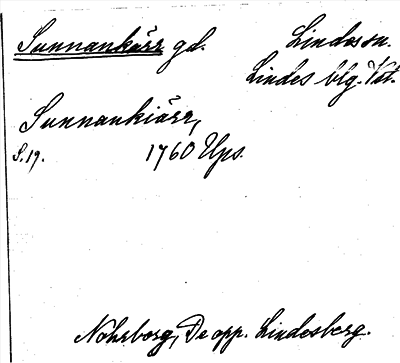 Sunnankärr gd. Lindessn.
Lindes blg. Vstm.
Sunnankiärr,
S. 19. 1760 Ups.
Nohrborg, De opp. Lindesberg.